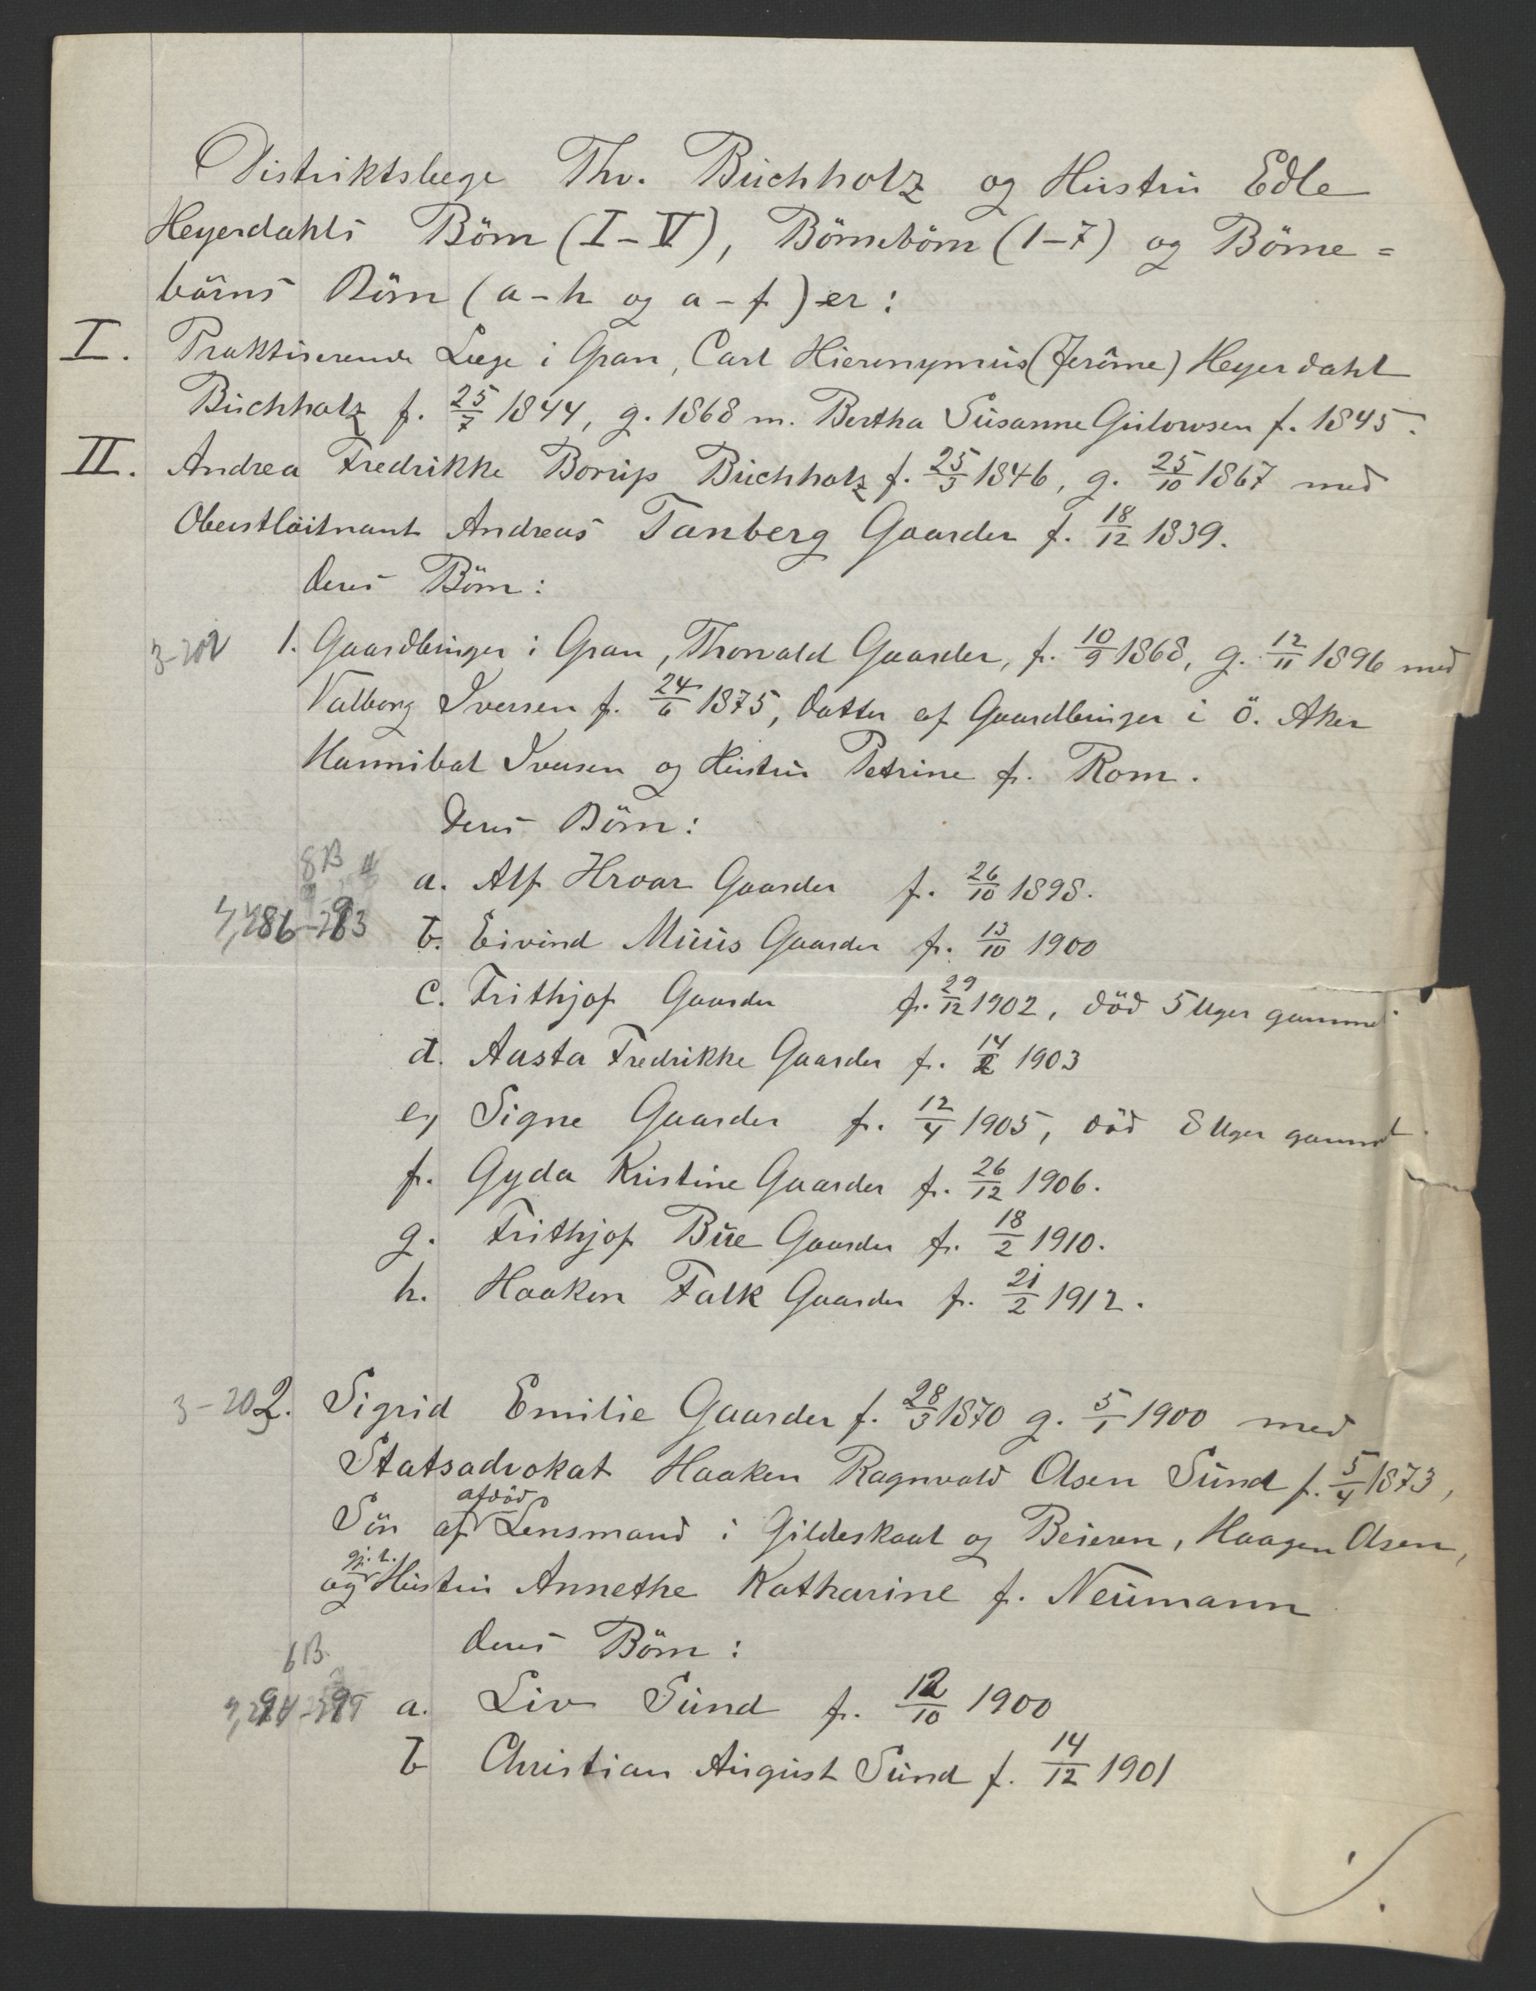 Distriktslæge Thv. Buchholz og Hustru Edle
Heyerdahls Börn (I-V), Börnebörn (1-7) og Börne=
börns Börn (a-h og a-f) er:
I. Praktiserende Læge i Gran, Carl Hieronymus (Jerôme) Heyerdahl
Buchholz f. 25/7 1844, g. 1868 m. Bertha Susanne Gulowsen f. 1845.
II. Andrea Fredrikke Borup Buchholz f. 25/3 1846, g. 25/10 1867 med
Oberstlöitnant Andreas Tanberg Gaarder f. 18/12 1839.
deres Börn:
3-202 1. Gaardbruger i Gran, Thorvald Gaarder, f. 10/9 1868, g. 12/11 1896 med
Valborg Iversen f. 24/6 1875, datter af Gaardbruger i Ö. Aker
Hannibal Iversen og Hustru Petrine f. Rom.
deres Börn:
8B
a. Alf Hroar Gaarder f. 26/10 1898.
b. Eivind Muus Gaarder f. 13/10 1900
c. Frithjof Gaarder f. 29/12 1902, död 5 Uger gammel.
d. Aasta Fredrikke Gaarder f. 14/2 1903
e, Signe Gaarder f. 12/4 1905, död 8 Uger gammel.
f. Gyda Kristine Gaarder f. 26/12 1906.
g. Frithjof Bue Gaarder f. 18/2 1910.
h. Haaken Falk Gaarder f. 21/2 1912.
3-203 2. Sigrid Emilie Gaarder f. 28/3 1870 g. 5/1 1900 med
Statsadvokat Haaken Ragnvald Olsen Sund f. 5/4 1873,
Sön af afdöd Lensmand i Gildeskaal og Beieren, Haagen Olsen,
og gj. l. Hustru Annethe Katharine f. Neumann
deres Börn:
6B.
a. Liv Sund f. 12/10 1900
b Christian August Sund f. 14/12 1901